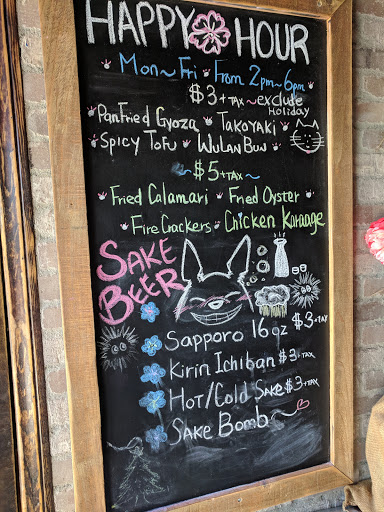 HAPPY HOUR
Mon~Fri From 2pm~6pm
$3+TAX~exclude Holiday
PanFried Gyoza Takoyaki
Spicy Tofu Wulan Bun
~$5+TAX~
Fried Calamari Fried Oyster
Fire Crackers Chicken Karaage
SAKE
BEER
Sapporo 16oz $3+TAX
Kirin Ichiban $3+TAX
Hot/Cold Sake $3+TAX
Sake Bomb~